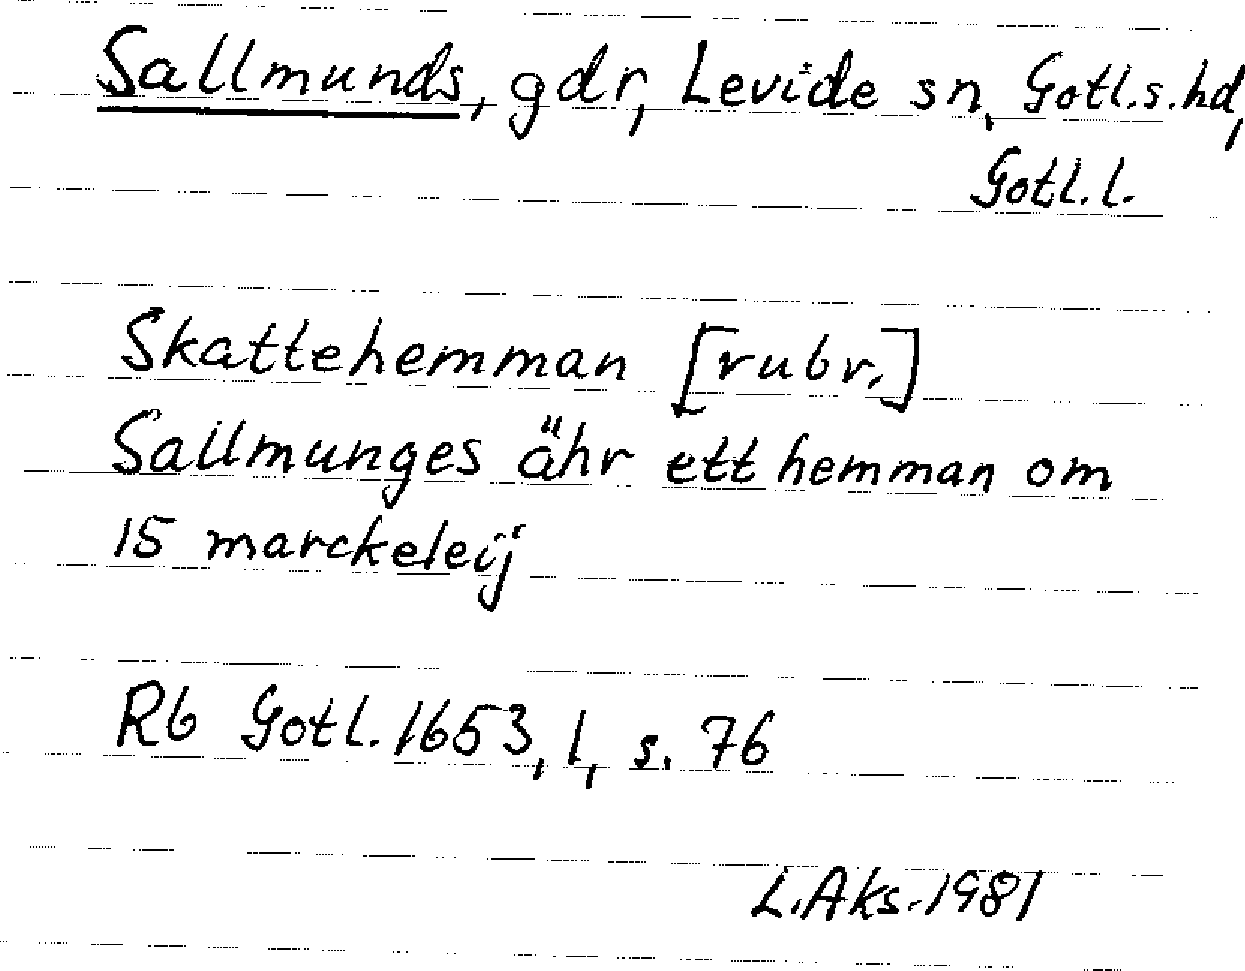 Sallmunds, gdr, Levide sn, Gotl.s.hd,
Gotl.l.
Skattehemman [rubr.]
Sallmunges ähr ett hemman om
15 marckeleij
Rb Gotl. 1653, 1, s. 76
L.Aks. 1981